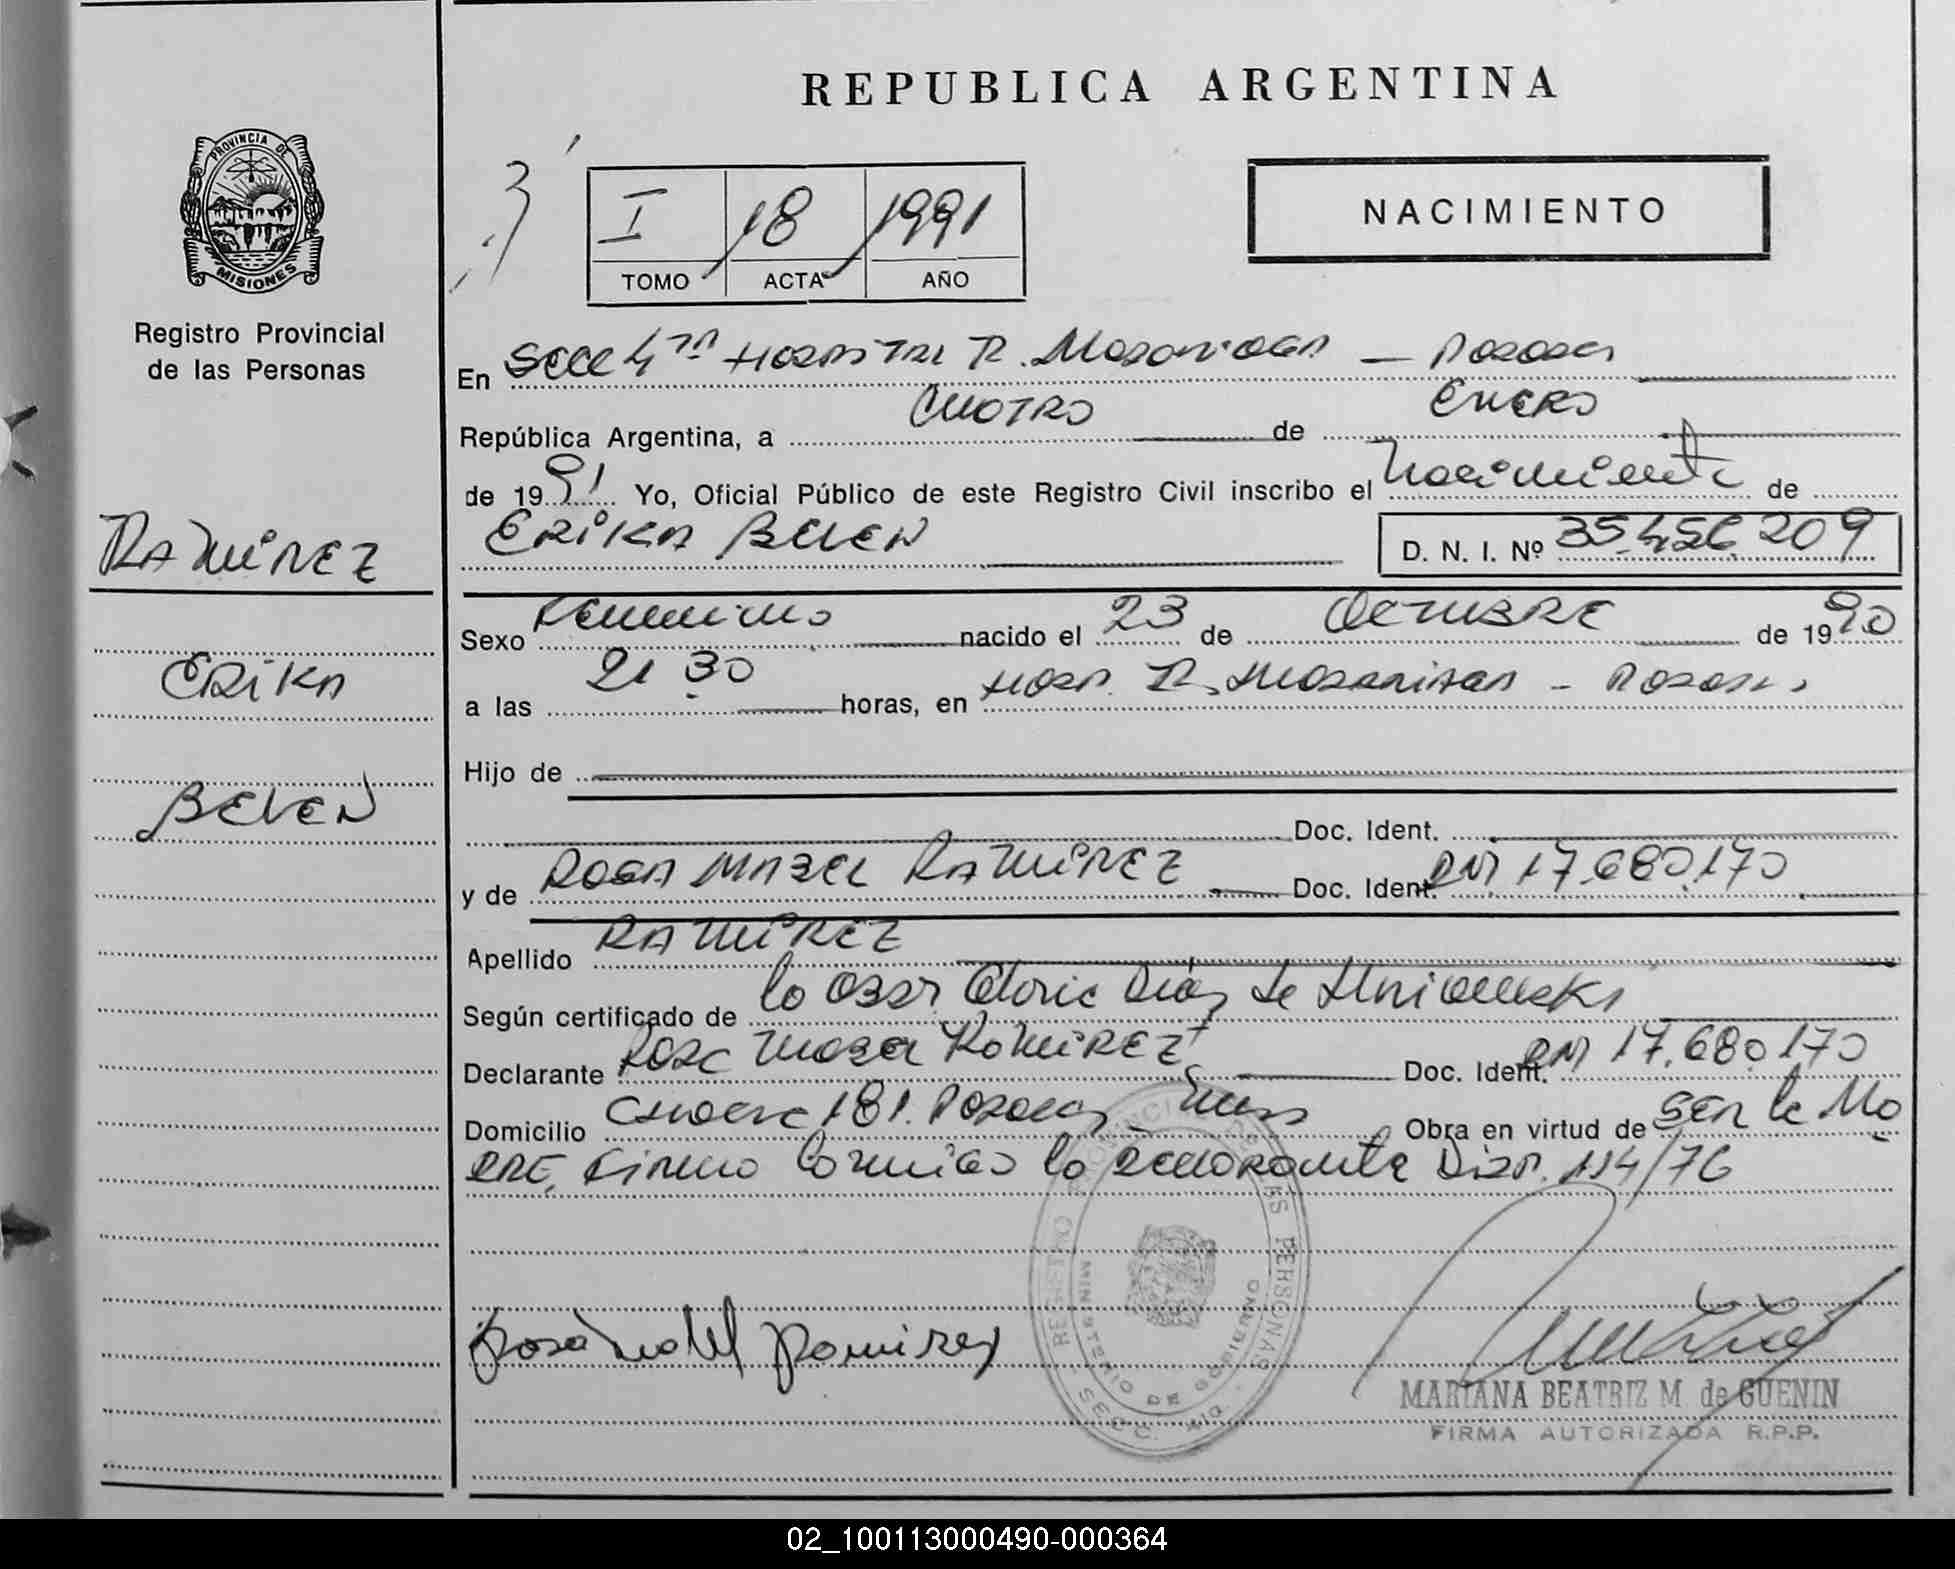 REPUBLICA ARGENTINA
PROVINCIA DE
MISIONES
Registro Provincial
de las Personas
I 18 1991
TOMO ACTA AÑO
NACIMIENTO
En Secc 4ta Hospital R. Madariaga — Posadas
República Argentina, a Cuatro de Enero
de 1991 Yo, Oficial Público de este Registro Civil inscribo el Nacimiento de
Erika Belen D. N. I. Nº 35.456.209
RAMIREZ
ERIKA
BELEN
Sexo Femenino nacido el 23 de Octubre de 1990
a las 21 30 horas, en Hosp. R. Madariaga - Posadas
Hijo de
Doc. Ident.
y de ROSA MABEL RAMIREZ Doc. Ident. DNI 17.680.170
Apellido RAMIREZ
Según certificado de la Obst Gloria Díaz de
Declarante Rosa Mabel RAMIREZ Doc. Ident. DNI 17.680.170
Domicilio 181. Posadas Mnes Obra en virtud de ser la Ma
dre, firma conmigo la declarante Disp. 114/76
REGISTRO PROVINCIAL DE LAS PERSONAS
MINISTERIO DE GOBIERNO
SECC. 4ta.
Rosa Mabel Ramirez
MARIANA BEATRIZ M. de GUENIN
FIRMA AUTORIZADA R.P.P.
02_100113000490-000364